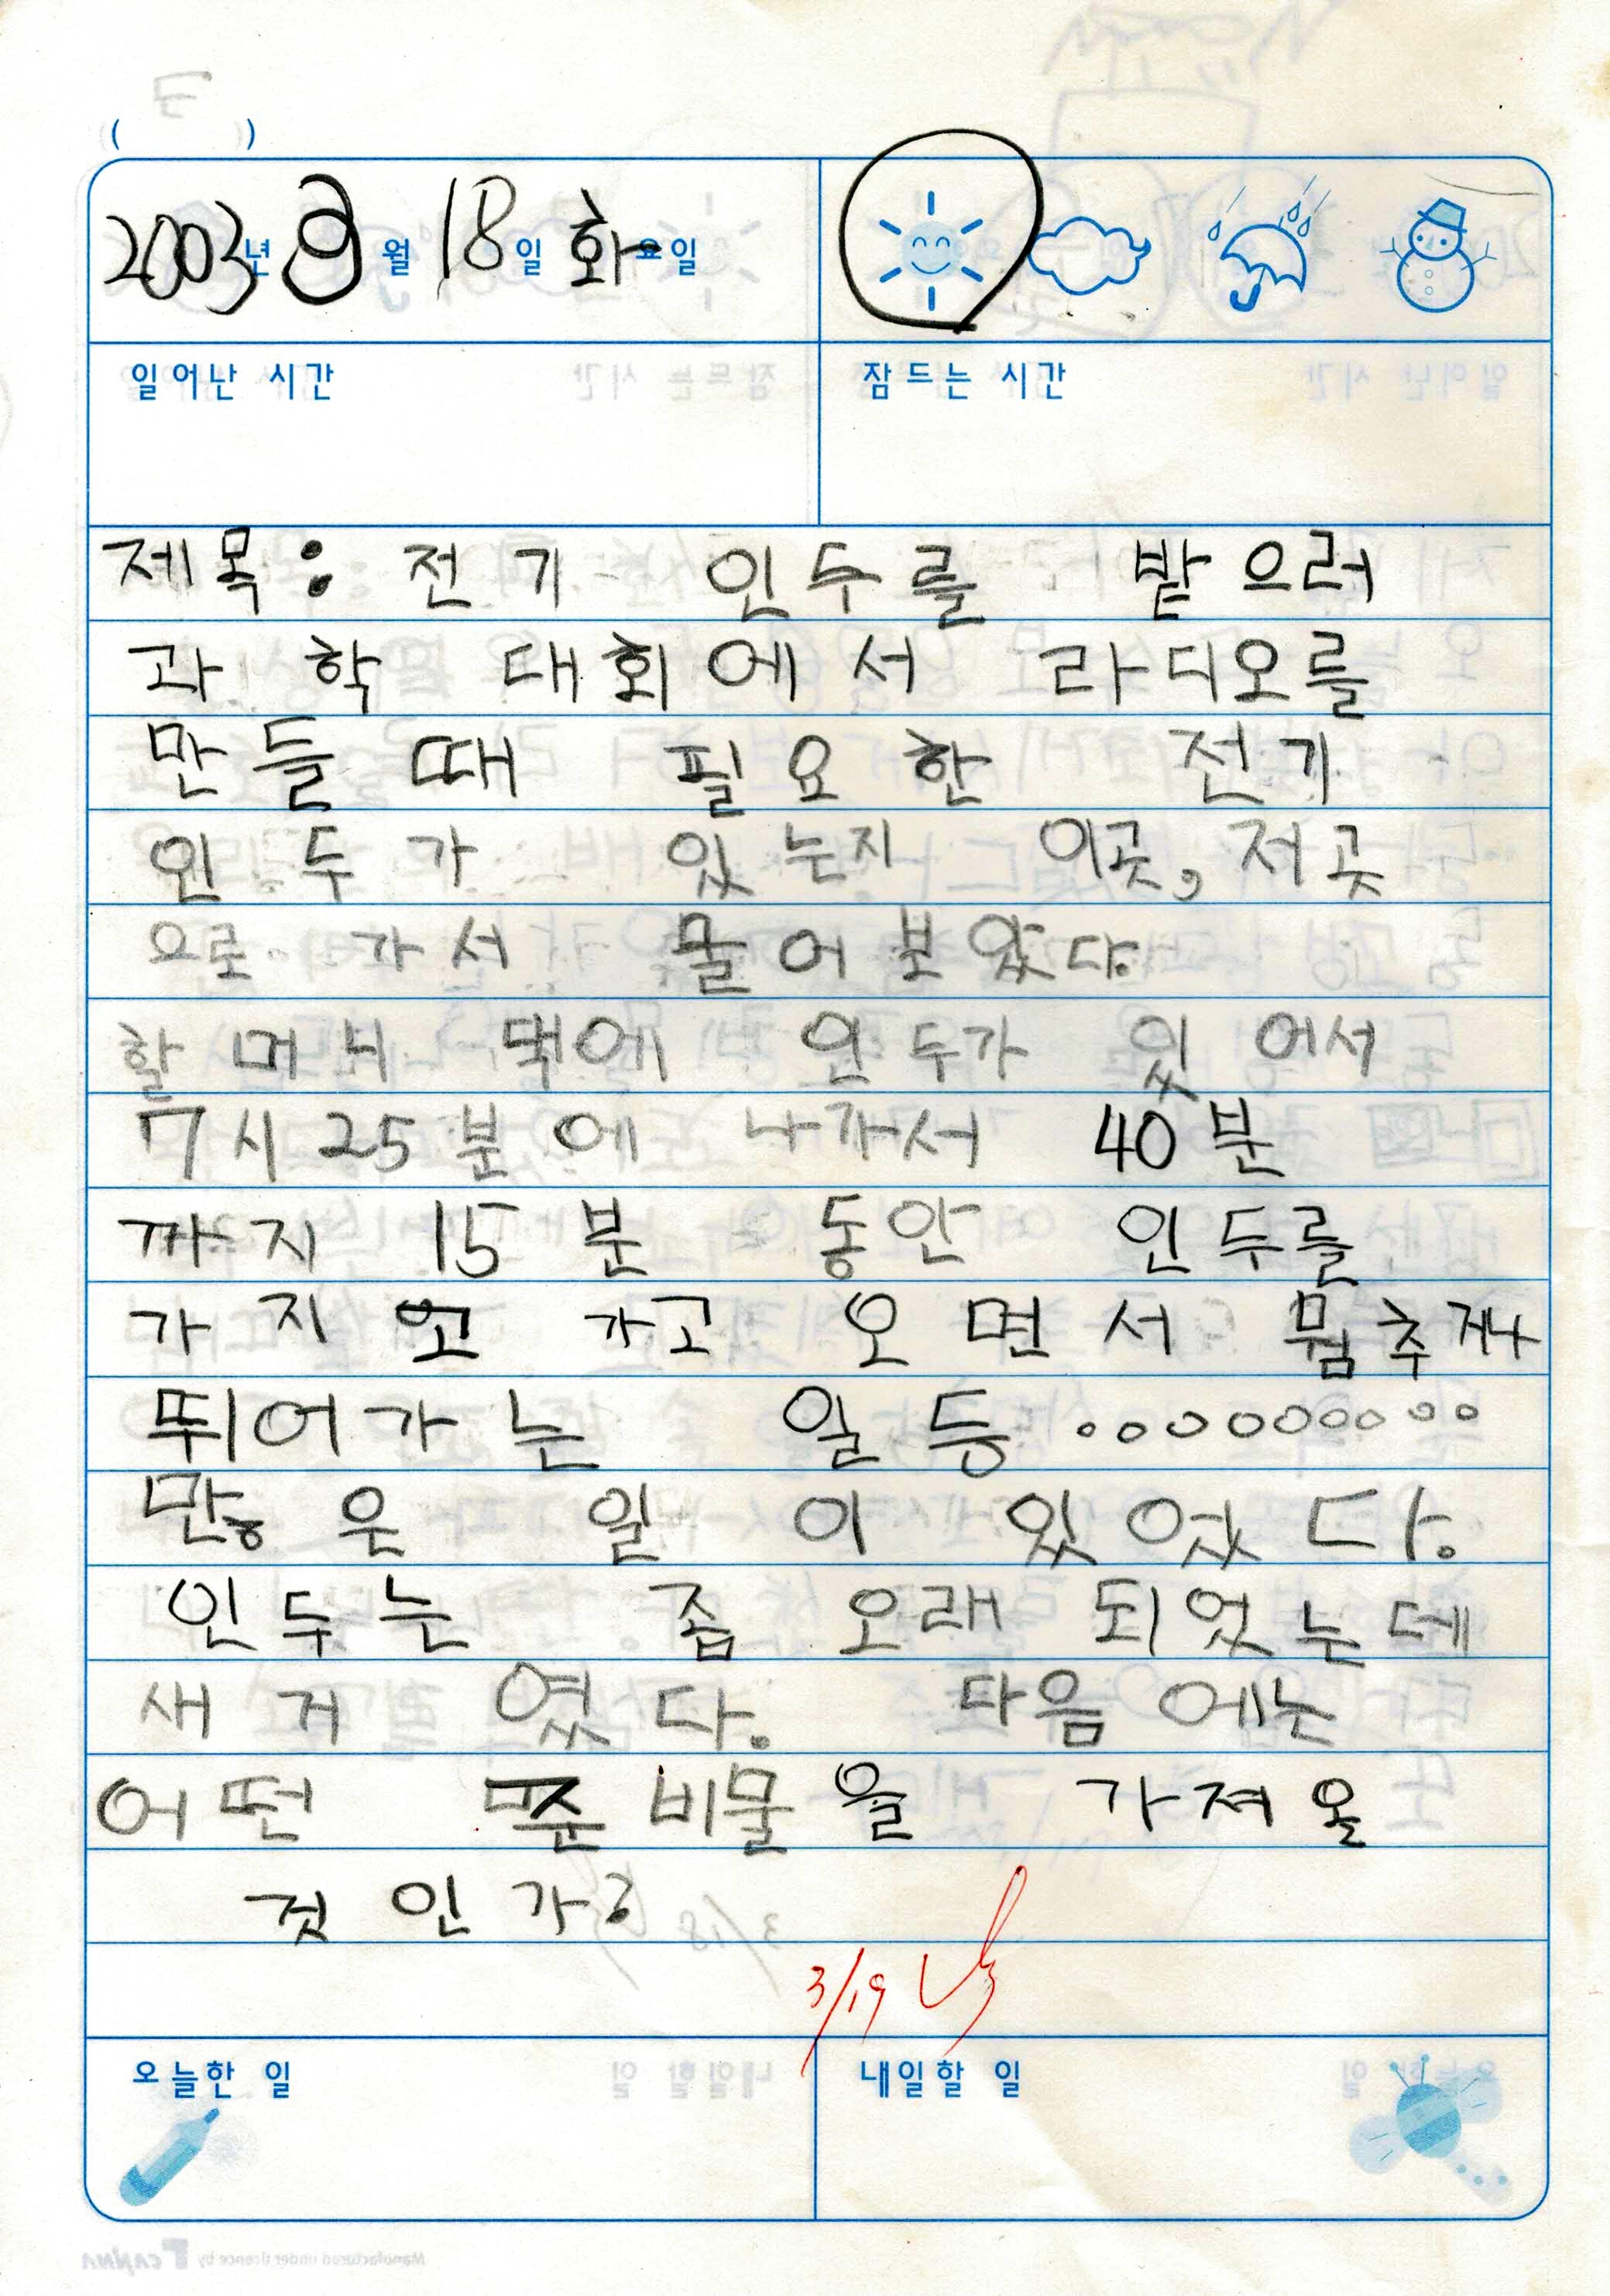 ( )
2003년 3월 18일 화요일
일어난 시간 잠드는 시간
제목: 전기 인두를 받으러
과학 대회에서 라디오를
만들때 필요한 전기
인두가 있는지 이곳, 저곳
으로 가서 물어보았다.
할머니 댁에 인두가 있어서
7시 25분에 나가서 40분
까지 15분 동안 인두를
가지고 가고 오면서 뭠추거나
뛰어가는 일등 ..........
많은 일이 있었다.
인두는 좀 오래 되었는데
새거였다. 다음에는
어떤 준비물을 가져올
것인가?
3/19
오늘한 일 내일할 일